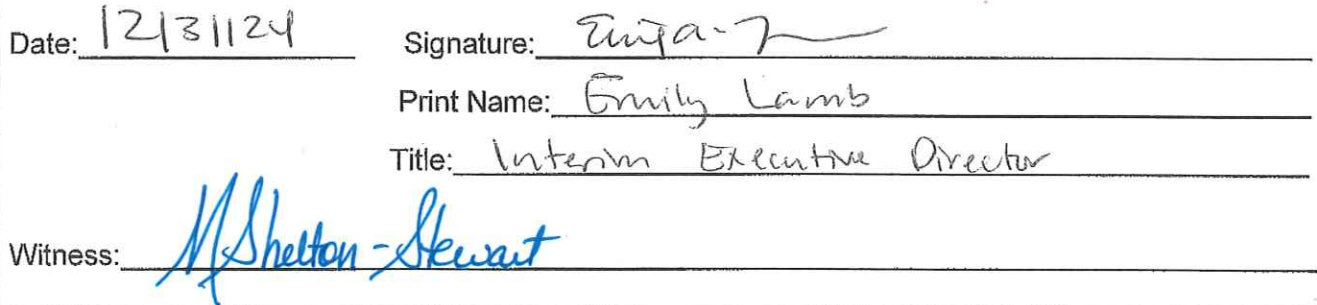 Date: 12/31/24 Signature:
Print Name: Emily Lamb
Title: Interim Executive Director
Witness: M Shelton-Stewart